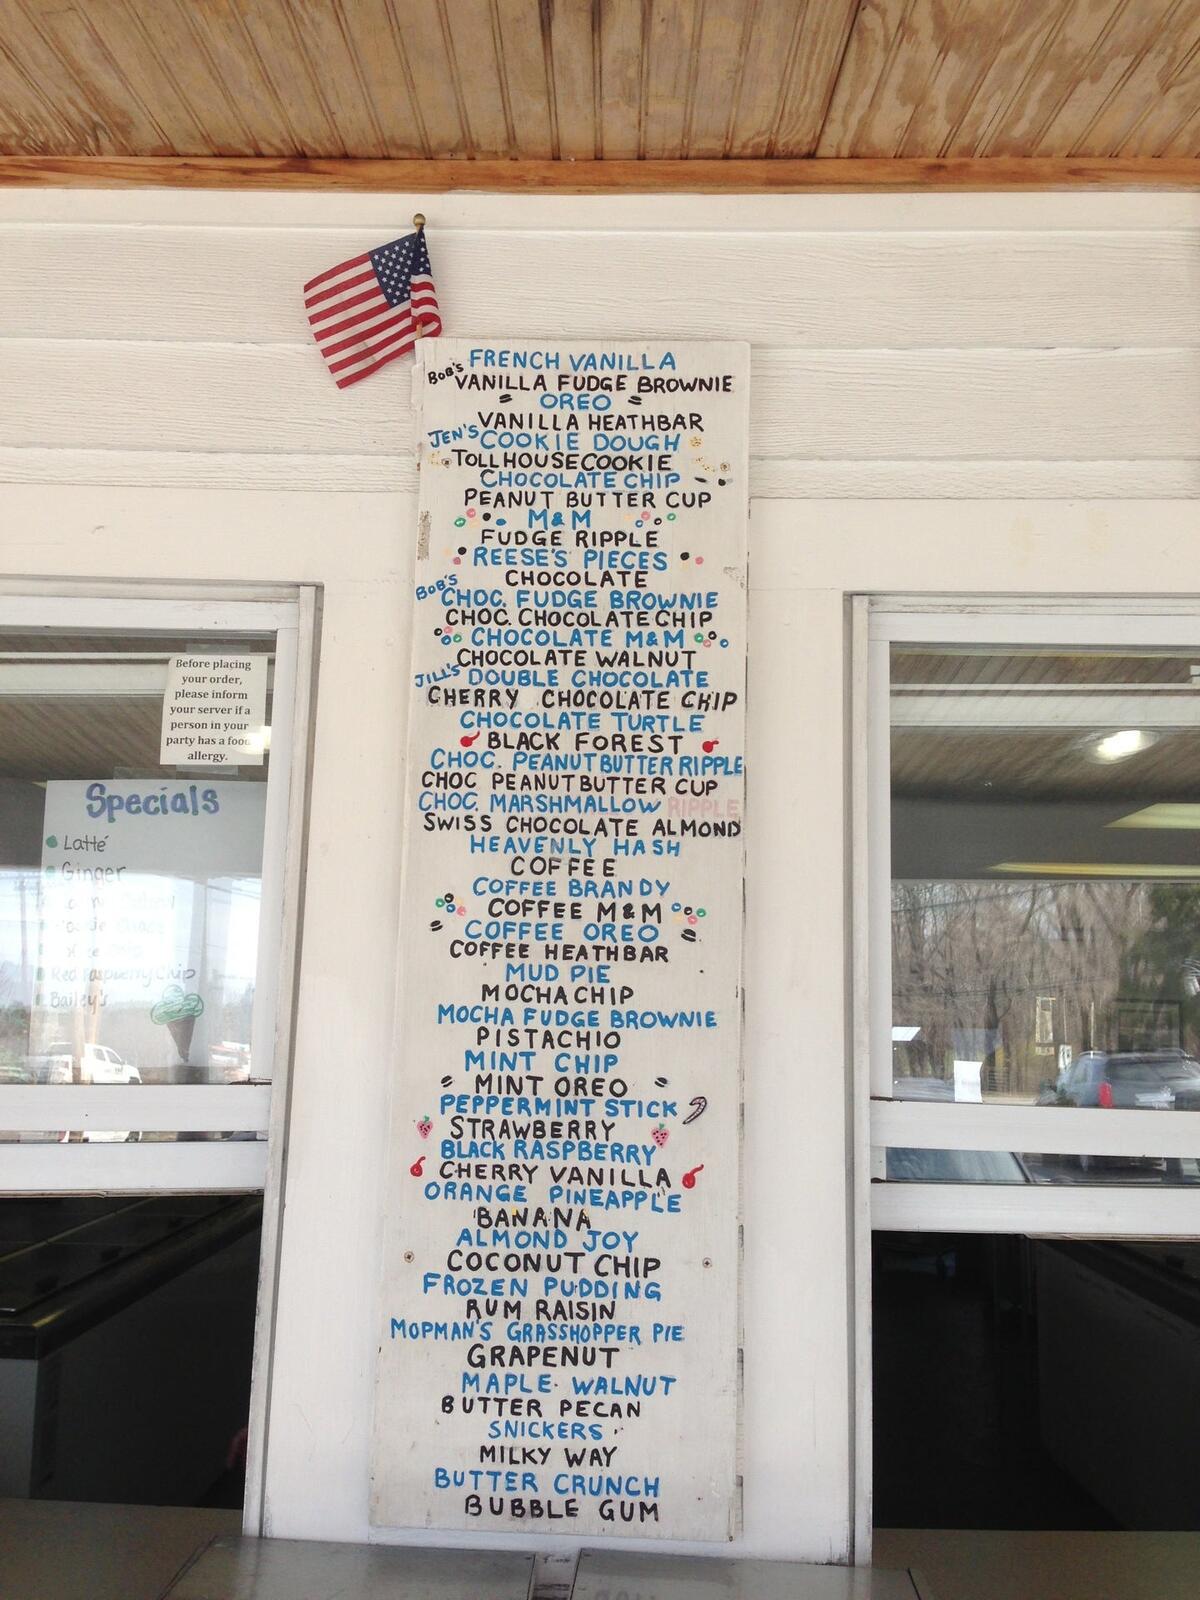 FRENCH VANILLA
BOB'S VANILLA FUDGE BROWNIE
OREO
VANILLA HEATHBAR
JEN'S COOKIE DOUGH
TOLLHOUSE COOKIE
CHOCOLATE CHIP
PEANUT BUTTER CUP
M&M
FUDGE RIPPLE
REESE'S PIECES
CHOCOLATE
BOB'S CHOC. FUDGE BROWNIE
CHOC. CHOCOLATE CHIP
CHOCOLATE M&M
CHOCOLATE WALNUT
JILL'S DOUBLE CHOCOLATE
CHERRY CHOCOLATE CHIP
CHOCOLATE TURTLE
BLACK FOREST
CHOC. PEANUT BUTTER RIPPLE
CHOC PEANUT BUTTER CUP
CHOC. MARSHMALLOW RIPPLE
SWISS CHOCOLATE ALMOND
HEAVENLY HASH
COFFEE
COFFEE BRANDY
COFFEE M&M
COFFEE OREO
COFFEE HEATHBAR
MUD PIE
MOCHA CHIP
MOCHA FUDGE BROWNIE
PISTACHIO
MINT CHIP
MINT OREO
PEPPERMINT STICK
STRAWBERRY
BLACK RASPBERRY
CHERRY VANILLA
ORANGE PINEAPPLE
BANANA
ALMOND JOY
COCONUT CHIP
FROZEN PUDDING
RUM RAISIN
MOPMAN'S GRASSHOPPER PIE
GRAPENUT
MAPLE WALNUT
BUTTER PECAN
SNICKERS
MILKY WAY
BUTTER CRUNCH
BUBBLE GUM
Before placing
your order,
please inform
your server if a
person in your
party has a food
allergy.
Specials
Latté
Ginger
Red Raspberry Chip
Bailey's